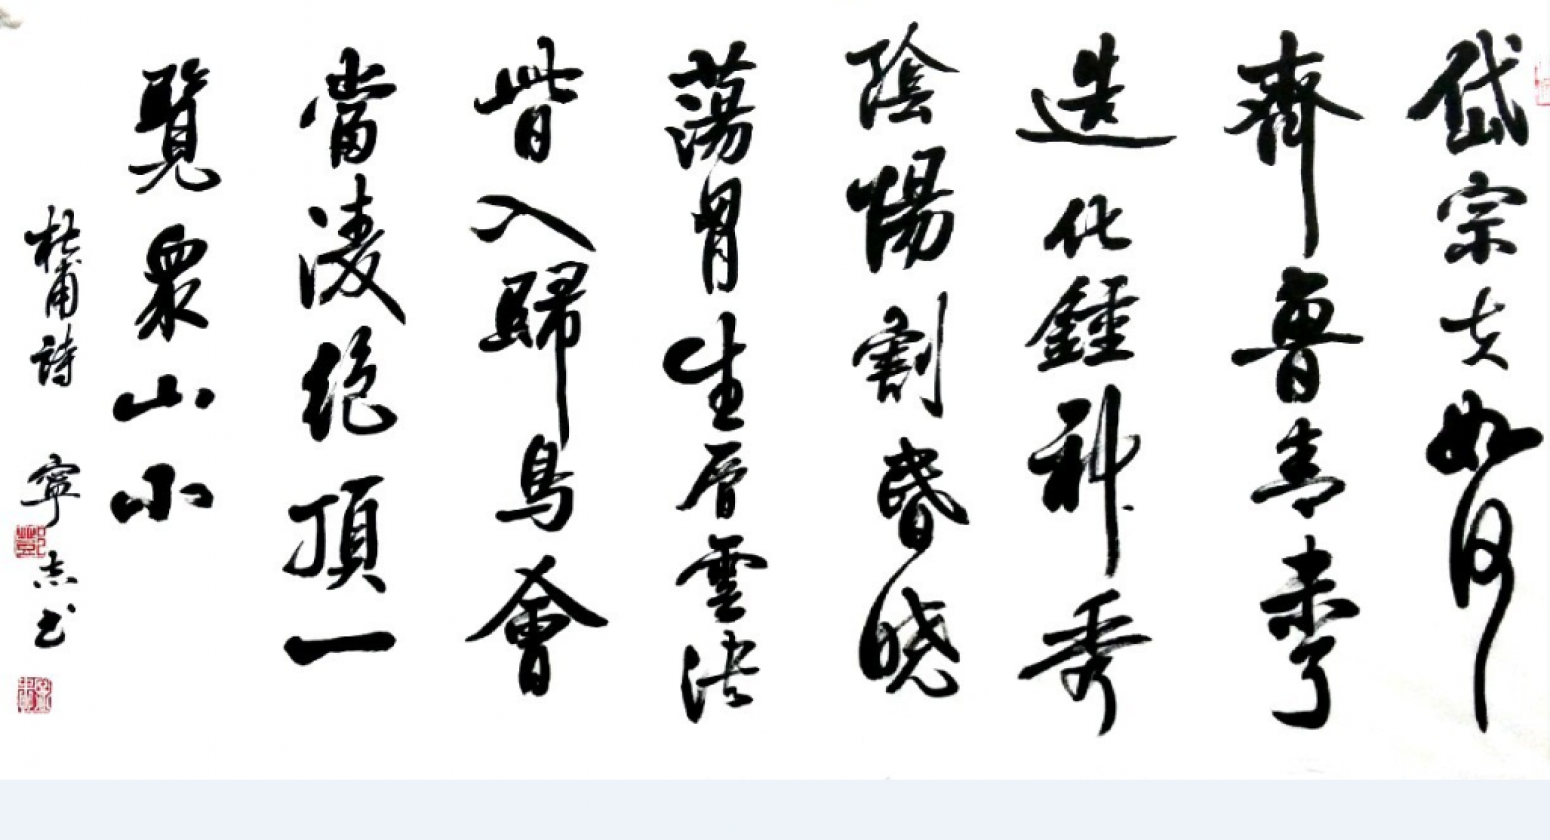 岱宗夫如何
齊魯青未了
造化鍾神秀
陰陽割昏曉
蕩胷生層雲決
眥入歸鳥會
當凌絕頂一
覽衆山小
杜甫詩 寧志书